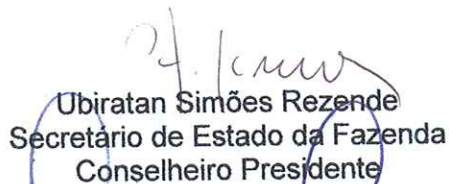 Ubiratan Simões Rezende
Secretário de Estado da Fazenda
Conselheiro Presidente